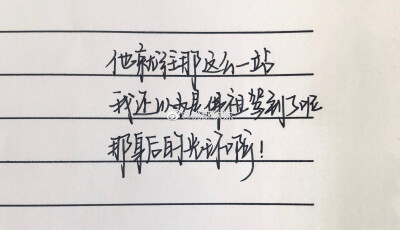 他就往那这么一站
我还以为是佛祖驾到了呢
那身后的光环啊！